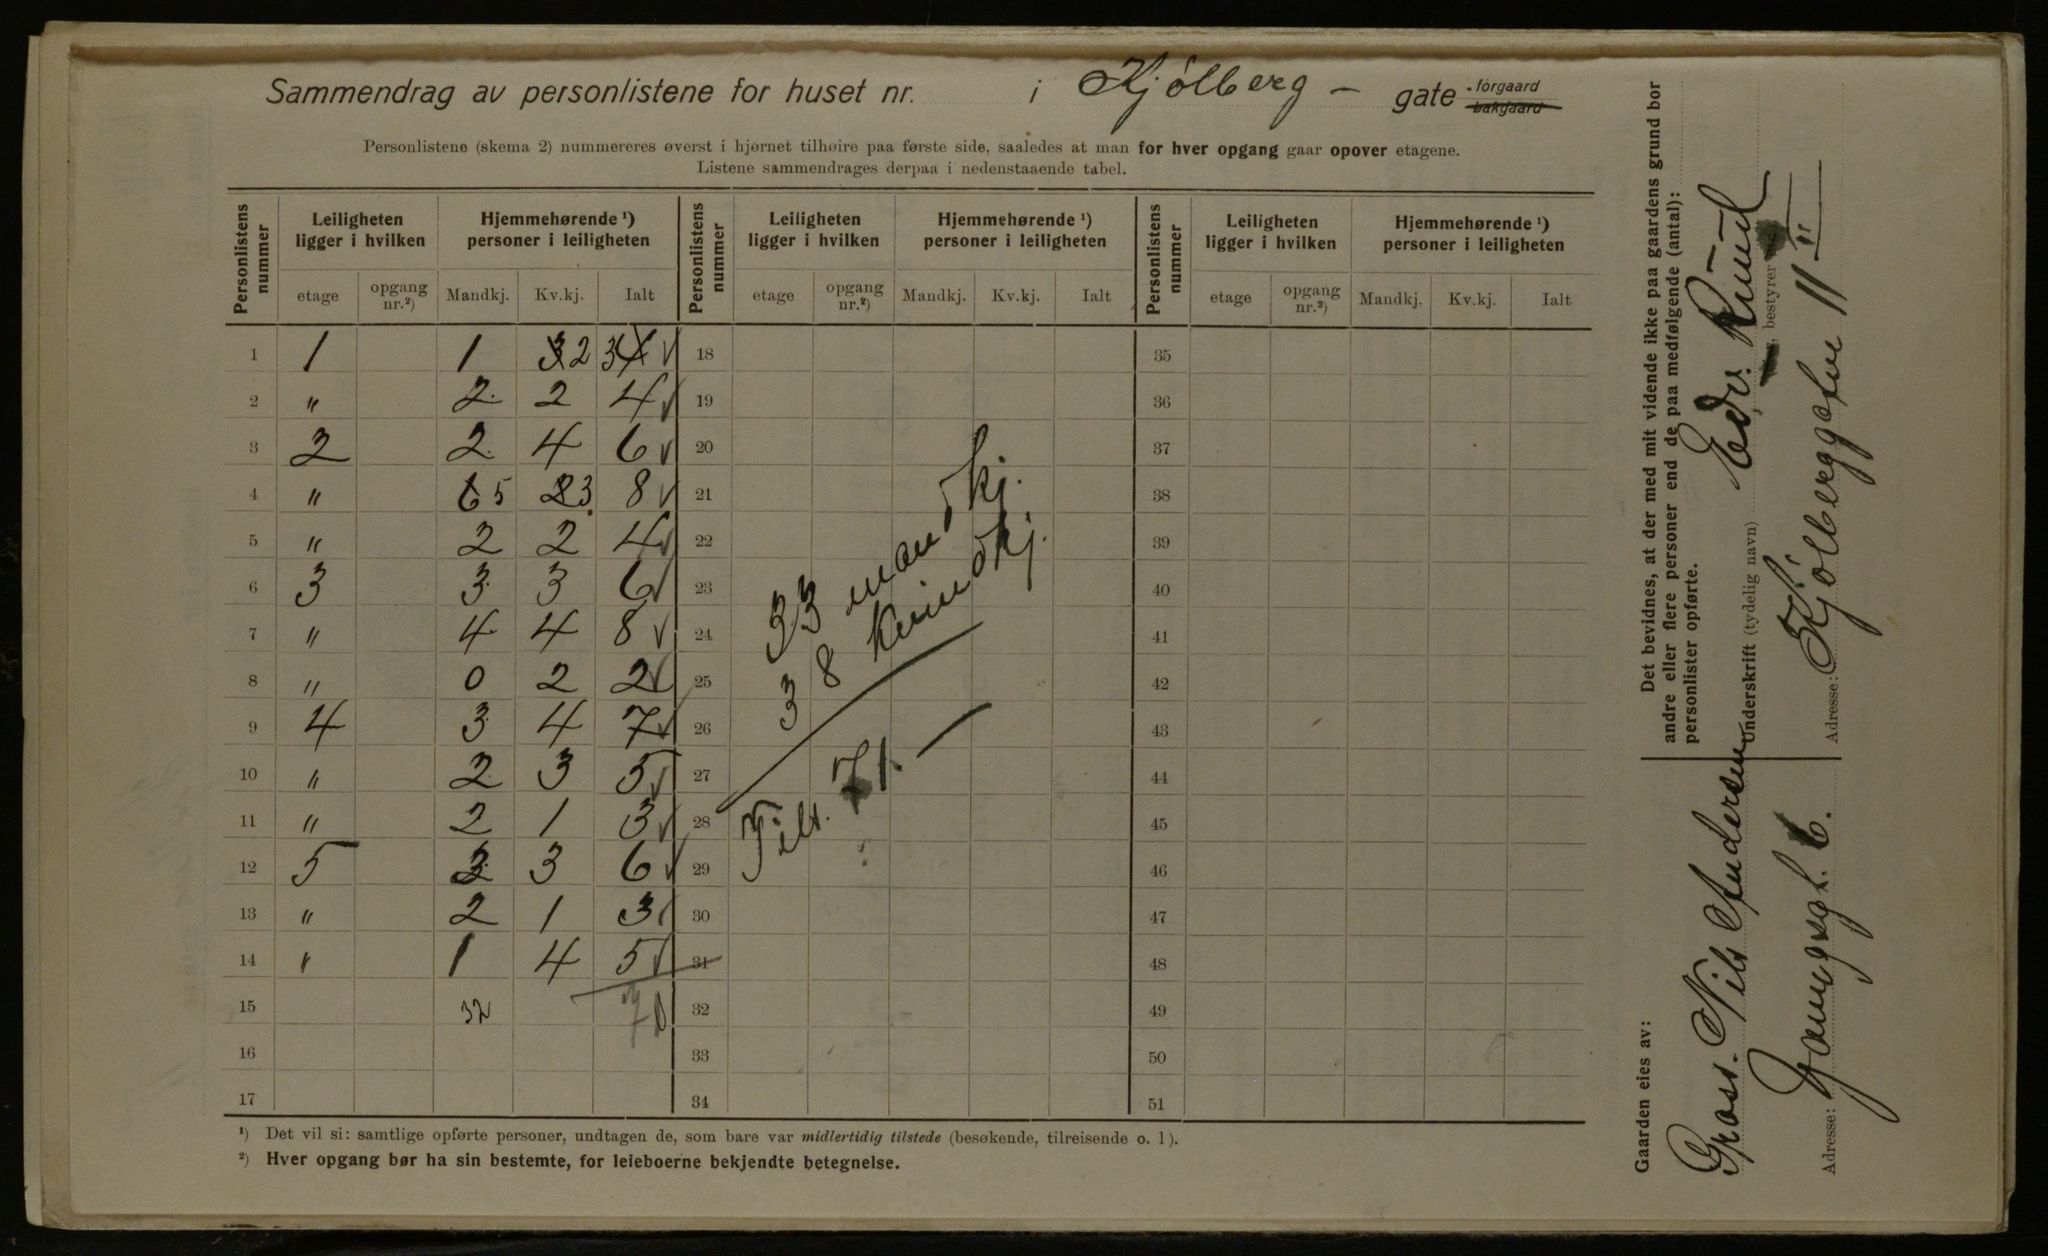 Sammendrag av personlistene for huset nr. i Kjølberg - gate forgaard bakgaard
Personlistene (skema 2) nummereres øverst i hjørnet tilhøire paa første side, saaledes at man for hver opgang gaar opover etagene.
Listene sammendrages derpaa i nedenstaaende tabel.
Personlistens nummer Leiligheten ligger i hvilken Hjemmehørende ¹) personer i leiligheten Personlistens nummer Leiligheten ligger i hvilken Hjemmehørende ¹) personer i leiligheten Personlistens nummer Leiligheten ligger i hvilken Hjemmehørende ¹) personer i leiligheten
etage opgang nr.²) Mandkj. Kv.kj. Ialt etage opgang nr.²) Mandkj. Kv.kj. Ialt etage opgang nr.²) Mandkj. Kv.kj. Ialt
1 1 1 3 2 3 4 18 35
2 " 2 2 4 19 36
3 2 2 4 6 20 37
4 " 6 5 2 3 8 21 38
5 " 2 2 4 22 39
6 3 3 3 6 23 40
7 " 4 4 8 24 41
8 " 0 2 2 25 42
9 4 3 4 7 26 43
10 " 2 3 5 27 44
11 " 2 1 3 28 45
12 5 3 3 6 29 46
13 " 2 1 3 30 47
14 " 1 4 5 31 48
15 32 70 32 49
16 33 50
17 34 51
33 mandkj.
38 kvindkj.
Tils. 71.
¹) Det vil si: samtlige opførte personer, undtagen de, som bare var midlertidig tilstede (besøkende, tilreisende o. l).
²) Hver opgang bør ha sin bestemte, for leieboerne bekjendte betegnelse.
Det bevidnes, at der med mit vidende ikke paa gaardens grund bor
andre eller flere personer end de paa medfølgende (antal):
personlister opførte.
Edv. Ruud
Underskrift (tydelig navn) , bestyrer
Adresse: Kjølberggaten 11 II
Gaarden eies av:
Gross. Nils Andersen
Adresse: